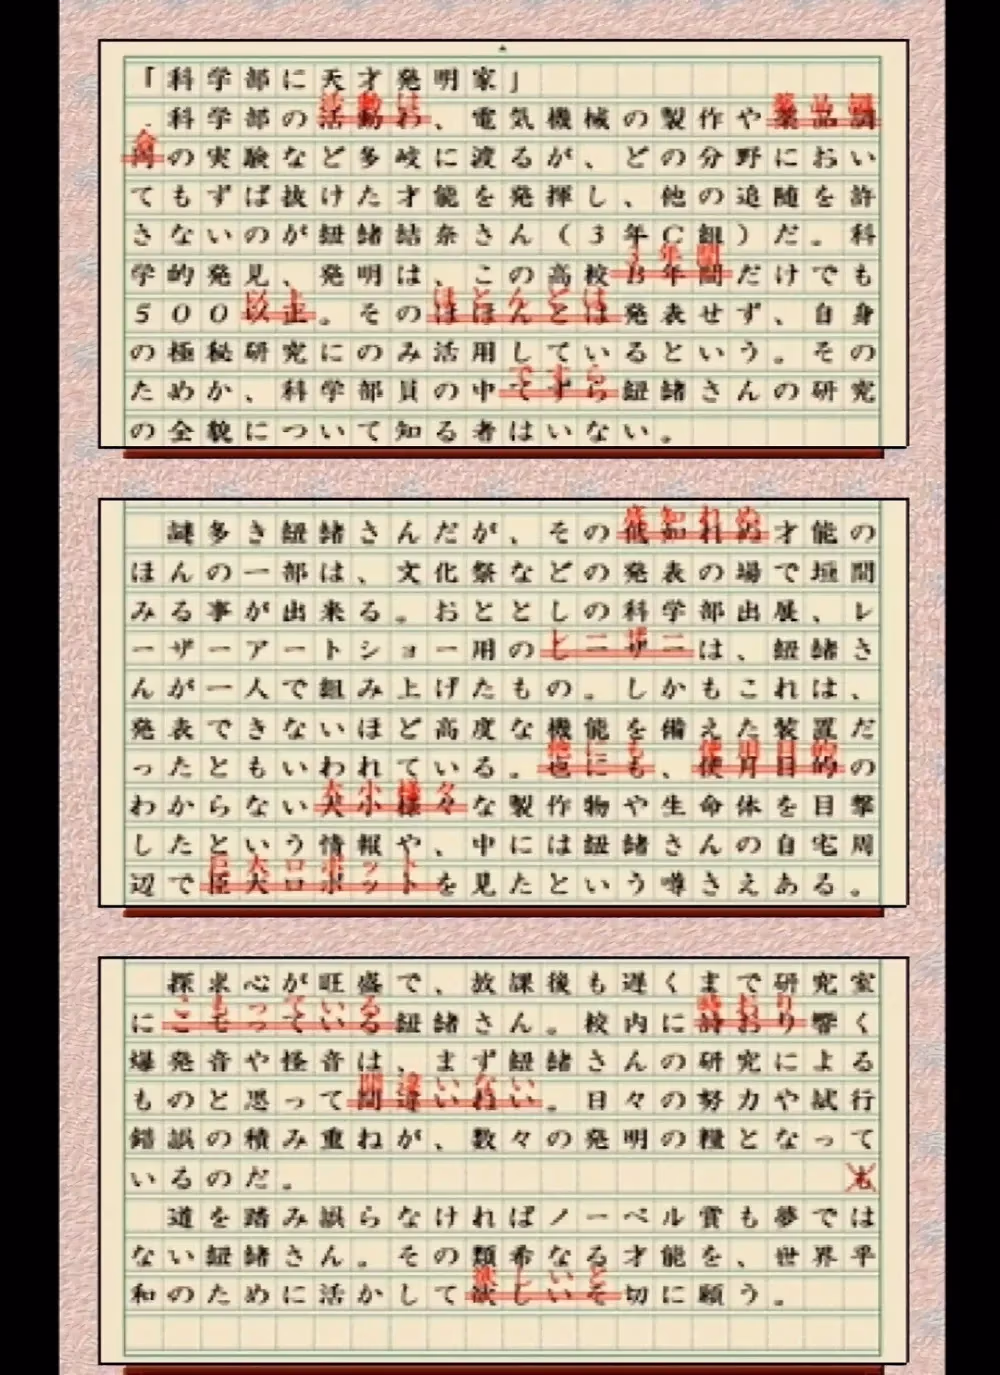 「科学部に天才発明家」
活動は　薬品調
科学部の活動わ、電気機械の製作や薬品調
合
の実験など多岐に渡るが、どの分野におい
てもずば抜けた才能を発揮し、他の追随を許
さないのが紐緒結奈さん(3年C組)だ。科
3年間
学的発見、発明は、この高校B年間だけでも
以上　ほとんどは
500以正。そのほほんとは発表せず、自身
の極秘研究にのみ活用しているという。その
ですら
ためか、科学部員の中てずら紐緒さんの研究
の全貌について知る者はいない。
底知れぬ
謎多き紐緒さんだが、その低知れぬ才能の
ほんの一部は、文化祭などの発表の場で垣間
みる事が出来る。おととしの科学部出展、レ
ーザーアートショー用のは、紐緒さ
んが一人で組み上げたもの。しかもこれは、
発表できないほど高度な機能を備えた装置だ
他にも　使用目的
ったともいわれている。也にも、使月目的の
大小様々
わからない犬小様々な製作物や生命体を目撃
したという情報や、中には紐緒さんの自宅周
巨大ロボット
辺で臣大ロボットを見たという噂さえある。
探求心が旺盛で、放課後も遅くまで研究室
こもっている　時おり
にこモっている紐緒さん。校内に詩おり響く
爆発音や怪音は、まず紐緒さんの研究による
間違いない
ものと思って間違いねい。日々の努力や試行
錯誤の積み重ねが、数々の発明の糧となって
いるのだ。
道を踏み誤らなければノーベル賞も夢では
ない紐緒さん。その類希なる才能を、世界平
欲しいと
和のために活かして欲しいそ切に願う。